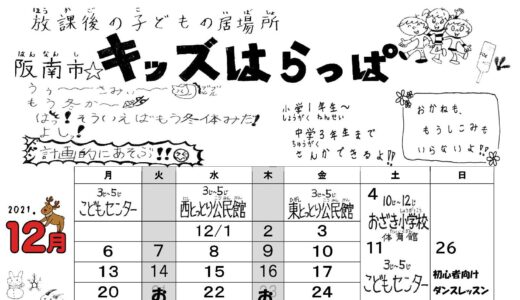 ほうかご こ いばしょ
放課後の子どもの居場所
はんなんし
阪南市☆キッズはらっぱ
うぅ〜さみぃ〜
もう冬か〜
はっ!そういえばもう冬休みだ!
よし!
計画的にあそぶ!!
小学1年生〜
しょうがく ねんせい
中学3年生まで
ちゅうがく
さんかできるよ!!
おかねも、
もうしこみも
いらないよ!!
2021.
12月
月 火 水 木 金 土 日
3じ〜5じ
こどもセンター
3じ〜5じ
西とっとり公民館
3じ〜5じ
東とっとり公民館
4 10じ〜12じ
おざき小学校
体育館
12/1 2 3
6 7 8 9 10 11
3じ〜5じ
こどもセンター
26
初心者向け
ダンスレッスン
13 14 15 16 17
20 お 22 お 24